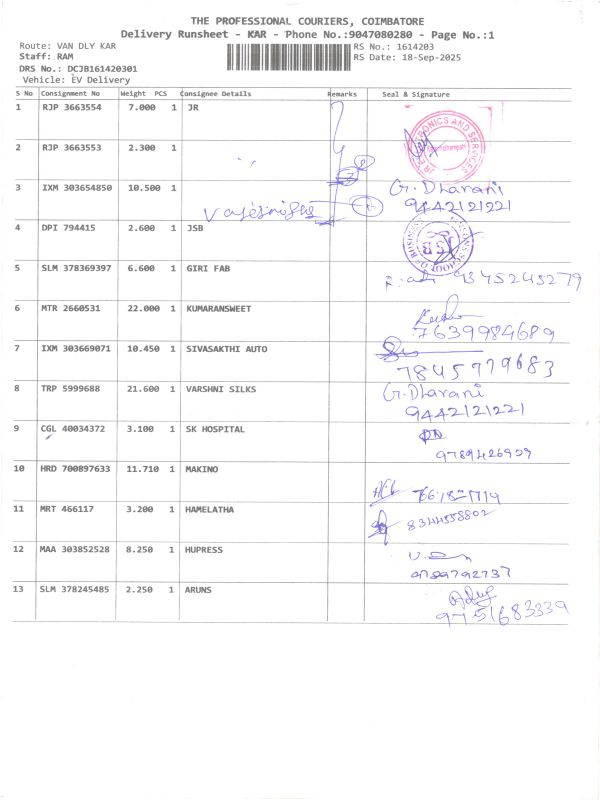 THE PROFESSIONAL COURIERS, COIMBATORE
Delivery Runsheet - KAR - Phone No.:9047080280 - Page No.:1
Route: VAN DLY KAR RS No.: 1614203
Staff: RAM RS Date: 18-Sep-2025
DRS No.: DCJB161420301
Vehicle: EV Delivery
S No Consignment No Weight PCS Consignee Details Remarks Seal & Signature
1 RJP 3663554 7.000 1 JR
2 RJP 3663553 2.300 1
3 IXM 303654850 10.500 1 G. Dharani
9442121221
4 DPI 794415 2.600 1 JSB JSB
5 SLM 378369397 6.600 1 GIRI FAB 9345245279
6 MTR 2660531 22.000 1 KUMARANSWEET
7639984689
7 IXM 303669071 10.450 1 SIVASAKTHI AUTO
7845779683
8 TRP 5999688 21.600 1 VARSHNI SILKS G. Dharani
9442121221
9 CGL 40034372 3.100 1 SK HOSPITAL
9789426909
10 HRD 700897633 11.710 1 MAKINO
11 MRT 466117 3.200 1 HAMELATHA 8344558802
12 MAA 303852528 8.250 1 HUPRESS
13 SLM 378245485 2.250 1 ARUNS
9751683339